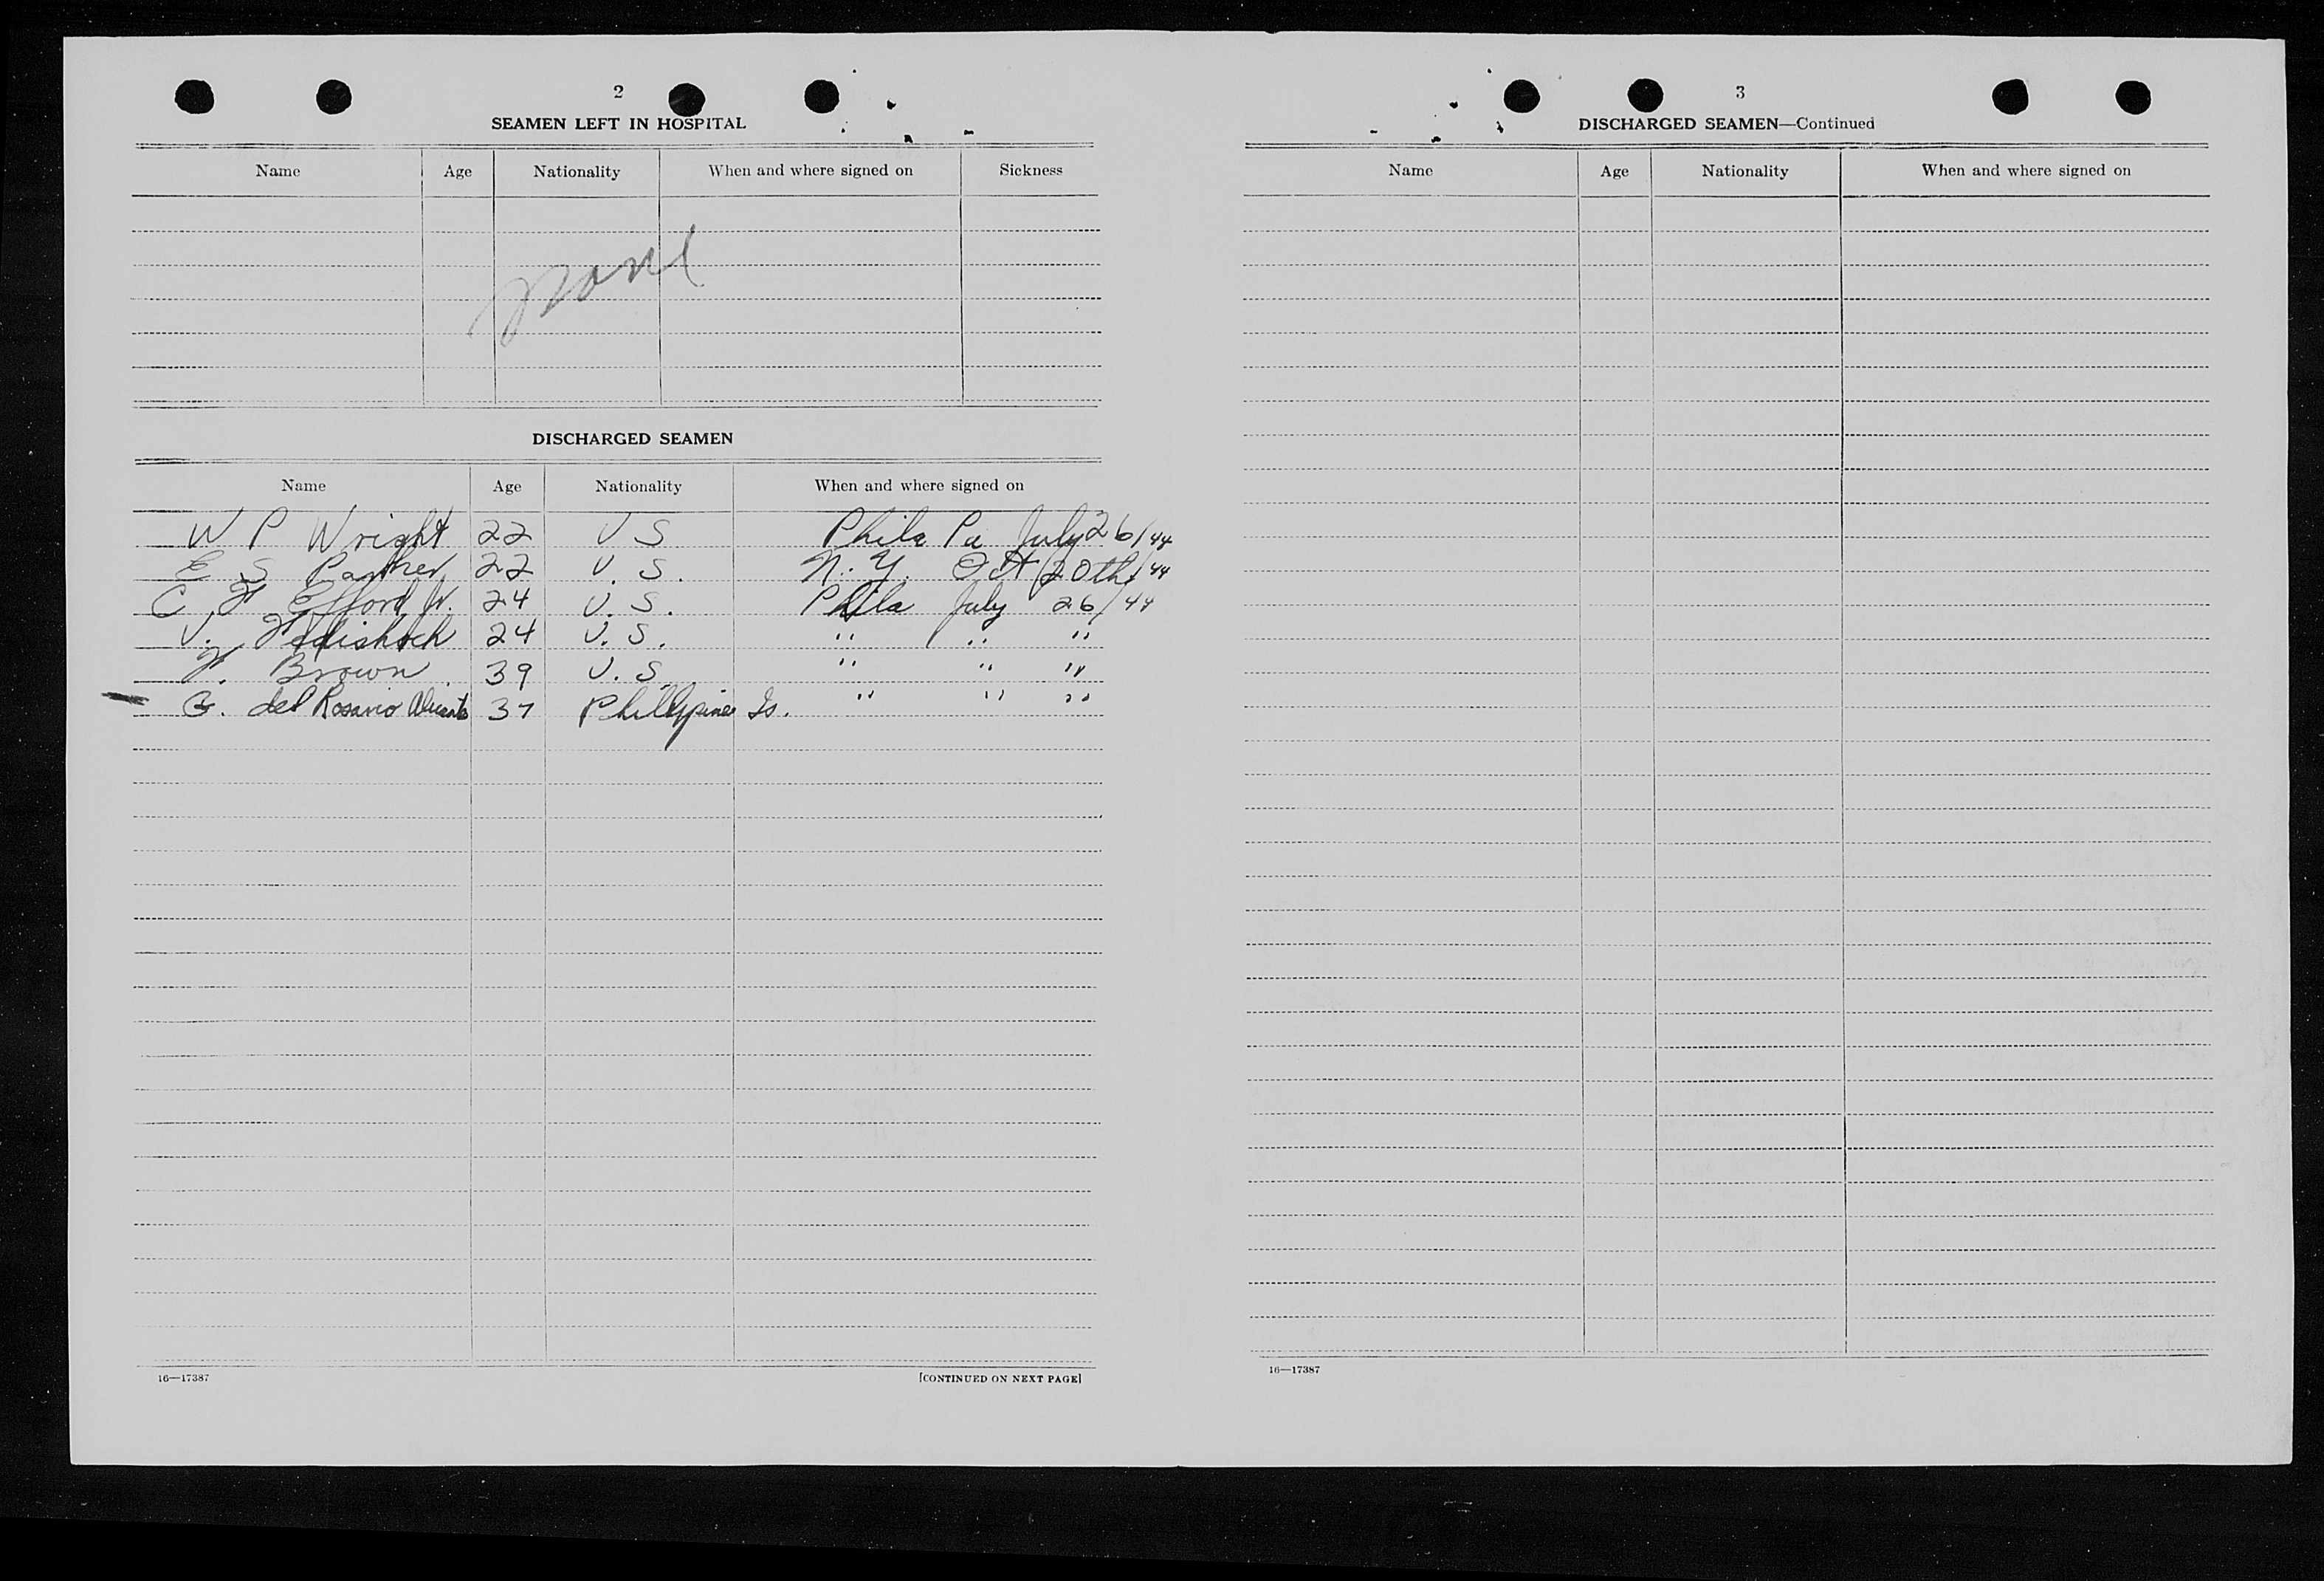 2
SEAMEN LEFT IN HOSPITAL
Name Age Nationality When and where signed on Sickness
None
DISCHARGED SEAMEN
Name Age Nationality When and where signed on
W P Wright 22 U S Phila Pa July 26/44
E S 22 U. S. N. Y. Oct 20th/44
C F Efford Jr. 24 U. S. Phila July 26/44
V. 24 U. S. " " "
F. Brown 39 U. S. " " "
G. del Rosario 37 Phillipines Is. " " "
16—17387
[CONTINUED ON NEXT PAGE]
3
DISCHARGED SEAMEN—Continued
Name Age Nationality When and where signed on
16—17387